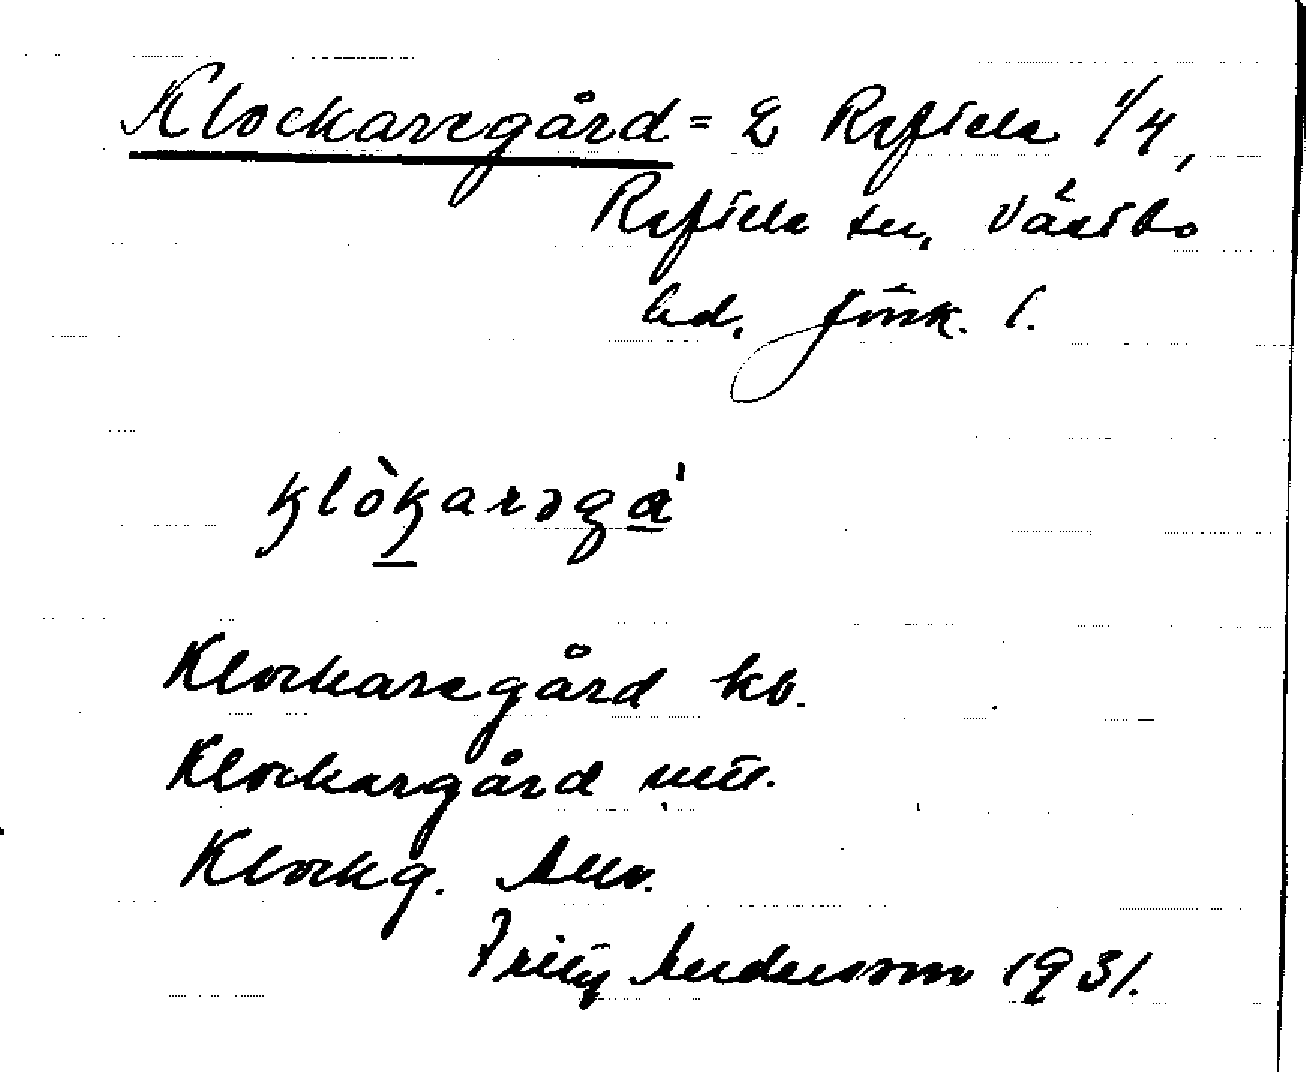 Klockaregård = 2 Reftele 1/4,
Reftele sn, Västbo
hd, Jönk. l.
klòkarəgá
Klockaregård kb.
Klockargård mtl.
Klockg. Allm.
Fritz Andersson 1931.